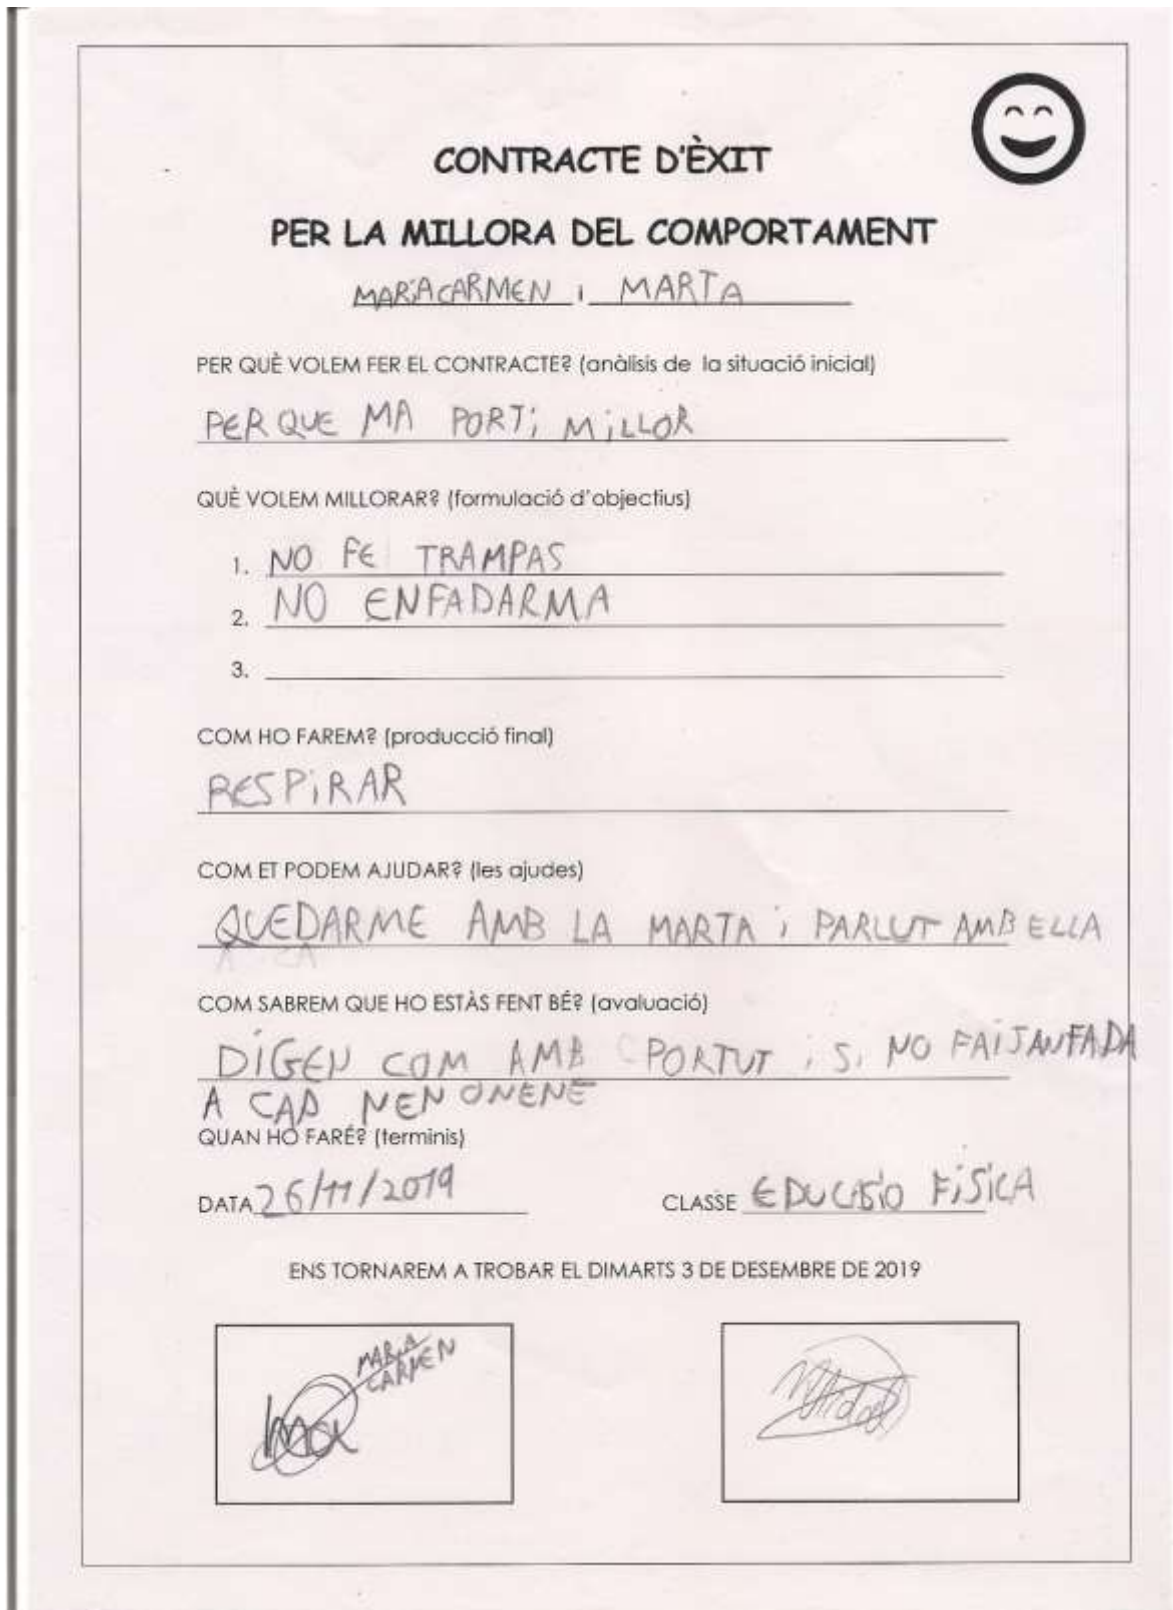 CONTRACTE D'ÈXIT
PER LA MILLORA DEL COMPORTAMENT
MARIACARMEN i MARTA
PER QUÈ VOLEM FER EL CONTRACTE? (anàlisis de la situació inicial)
PERQUE MA PORTi MiLLOR
QUÈ VOLEM MILLORAR? (formulació d'objectius)
1. NO FE TRAMPAS
2. NO ENFADARMA
3.
COM HO FAREM? (producció final)
RESPiRAR
COM ET PODEM AJUDAR? (les ajudes)
QUEDARME AMB LA MARTA i PARLUT AMB ELLA
COM SABREM QUE HO ESTÀS FENT BÉ? (avaluació)
DiGEU COM AMB PORTUT i Si NO FAIJANFADA
A CAP NEN ONENE
QUAN HO FARÉ? (terminis)
DATA 26/11/2019 CLASSE EDUCISiO FiSiCA
ENS TORNAREM A TROBAR EL DIMARTS 3 DE DESEMBRE DE 2019
MARIA
CARMEN